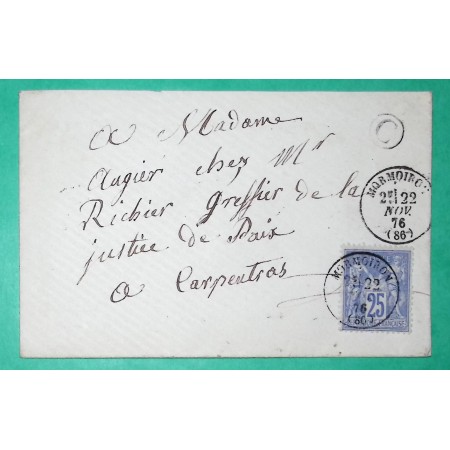 A Madame
Augier chez Mr
Richier greffier de la
justice de Paix
a Carpentras
MORMOIRON
2E 22
NOV.
76
(86)
MORMOIRON
22
76
(86)
25